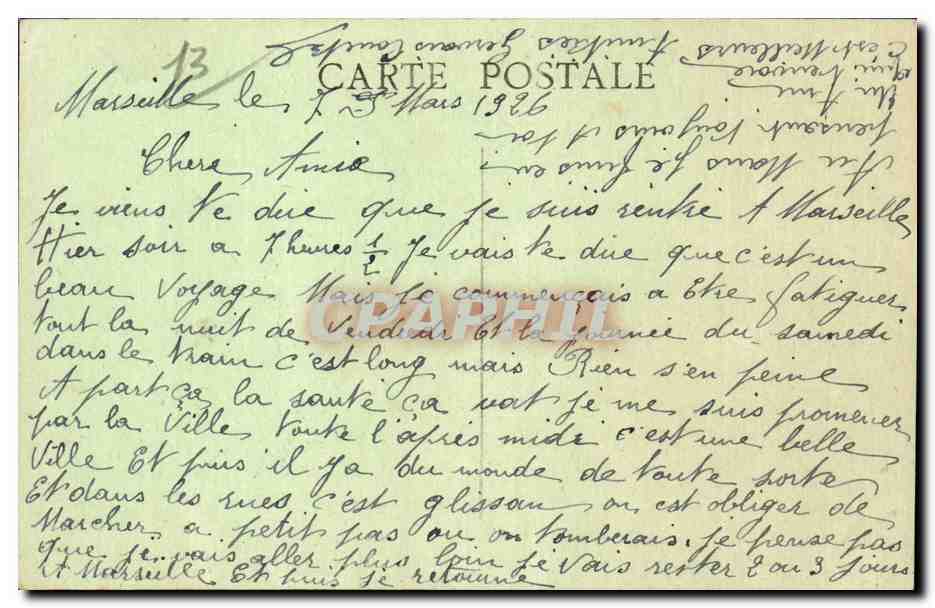 13
CARTE POSTALE
Marseille le 7 Mars 1926
Chere Amie
Je viens te dire que je suis rentre A Marseille
Hier soir a 7 heures 1/2 Je vais te dire que c'est un
beau voyage Mais je commencais a Etre fatiguer
tout la nuit de Vendredi Et la journée du samedi
dans le train c'est long mais Rien s'en peine
A part ça la santé ça vat je me suis promener
par la Ville toute l'après midi c'est une belle
Ville Et puis il ya du monde de toute sorte
Et dans les rues c'est glissan on est obliger de
Marcher a petit pas ou on tomberais. je pense pas
que je vais aller plus loin je vais rester 2 ou 3 jours
A Marseille Et puis je retourne
Au Mans je finis en
pensant toujours A toi
Un Ami
qui t'envoie
C'est Meilleurs
Amitiés Gervais
CPAPHIL